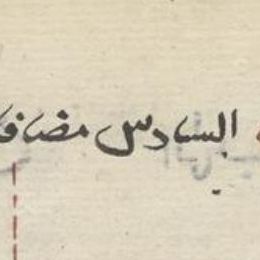 السادس مضاف